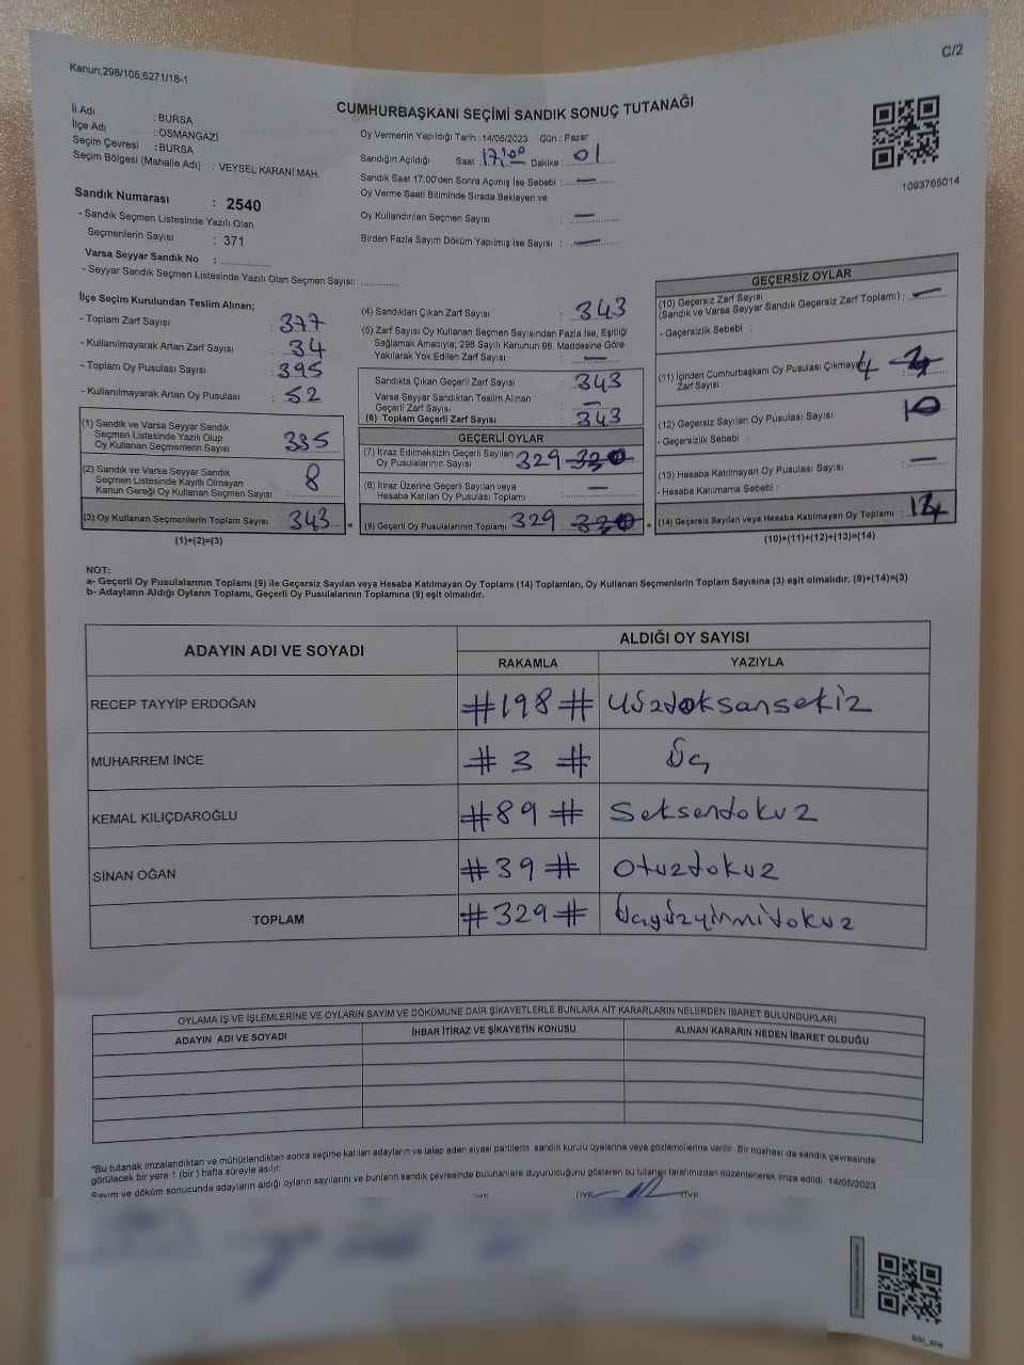 C/2
Kanun;298/105,6271/18-1
CUMHURBAŞKANI SEÇİMİ SANDIK SONUÇ TUTANAĞI
İl Adı : BURSA
İlçe Adı : OSMANGAZİ
Seçim Çevresi : BURSA
Seçim Bölgesi (Mahalle Adı) : VEYSEL KARANİ MAH.
Oy Vermenin Yapıldığı Tarih : 14/05/2023 Gün : Pazar
Sandığın Açıldığı Saat : 17:00 Dakika : 01
Sandık Saat 17:00'den Sonra Açılmış İse Sebebi : —
Oy Verme Saati Bitiminde Sırada Bekleyen ve
Oy Kullandırılan Seçmen Sayısı —
Birden Fazla Sayım Döküm Yapılmış İse Sayısı : —
1093765014
Sandık Numarası : 2540
- Sandık Seçmen Listesinde Yazılı Olan
Seçmenlerin Sayısı : 371
Varsa Seyyar Sandık No :
- Seyyar Sandık Seçmen Listesinde Yazılı Olan Seçmen Sayısı:
İlçe Seçim Kurulundan Teslim Alınan;
- Toplam Zarf Sayısı : 377
- Kullanılmayarak Artan Zarf Sayısı : 34
- Toplam Oy Pusulası Sayısı : 395
- Kullanılmayarak Artan Oy Pusulası : 52
(1) Sandık ve Varsa Seyyar Sandık
Seçmen Listesinde Yazılı Olup
Oy Kullanan Seçmenlerin Sayısı : 335
(2) Sandık ve Varsa Seyyar Sandık
Seçmen Listesinde Kayıtlı Olmayan
Kanun Gereği Oy Kullanan Seçmen Sayısı : 8
(3) Oy Kullanan Seçmenlerin Toplam Sayısı : 343 =
(1)+(2)=(3)
(4) Sandıktan Çıkan Zarf Sayısı : 343
(5) Zarf Sayısı Oy Kullanan Seçmen Sayısından Fazla İse, Eşitliği
Sağlamak Amacıyla; 298 Sayılı Kanunun 98. Maddesine Göre
Yakılarak Yok Edilen Zarf Sayısı : —
Sandıkta Çıkan Geçerli Zarf Sayısı : 343
Varsa Seyyar Sandıktan Teslim Alınan
Geçerli Zarf Sayısı : —
(6) Toplam Geçerli Zarf Sayısı : 343
GEÇERLİ OYLAR
(7) İtiraz Edilmeksizin Geçerli Sayılan
Oy Pusulalarının Sayısı 329 330
(8) İtiraz Üzerine Geçerli Sayılan veya
Hesaba Katılan Oy Pusulası Toplamı : —
(9) Geçerli Oy Pusulalarının Toplamı 329 330 +
GEÇERSİZ OYLAR
(10) Geçersiz Zarf Sayısı
(Sandık ve Varsa Seyyar Sandık Geçersiz Zarf Toplamı) : —
- Geçersizlik Sebebi :
(11) İçinden Cumhurbaşkanı Oy Pusulası Çıkmayan 4
Zarf Sayısı
(12) Geçersiz Sayılan Oy Pusulası Sayısı 10
- Geçersizlik Sebebi :
(13) Hesaba Katılmayan Oy Pusulası Sayısı —
- Hesaba Katılmama Sebebi :
(14) Geçersiz Sayılan veya Hesaba Katılmayan Oy Toplamı : 14
(10)+(11)+(12)+(13)=(14)
NOT:
a- Geçerli Oy Pusulalarının Toplamı (9) ile Geçersiz Sayılan veya Hesaba Katılmayan Oy Toplamı (14) Toplamları, Oy Kullanan Seçmenlerin Toplam Sayısına (3) eşit olmalıdır. (9)+(14)=(3)
b- Adayların Aldığı Oyların Toplamı, Geçerli Oy Pusulalarının Toplamına (9) eşit olmalıdır.
ADAYIN ADI VE SOYADI ALDIĞI OY SAYISI
RAKAMLA YAZIYLA
RECEP TAYYİP ERDOĞAN #198# Yüzdoksansekiz
MUHARREM İNCE # 3 # Üç
KEMAL KILIÇDAROĞLU #89 # Seksendokuz
SİNAN OĞAN #39 # Otuzdokuz
TOPLAM #329# Üçyüzyirmidokuz
OYLAMA İŞ VE İŞLEMLERİNE VE OYLARIN SAYIM VE DÖKÜMÜNE DAİR ŞİKAYETLERLE BUNLARA AİT KARARLARIN NELERDEN İBARET BULUNDUKLARI
ADAYIN ADI VE SOYADI İHBAR İTİRAZ VE ŞİKAYETİN KONUSU ALINAN KARARIN NEDEN İBARET OLDUĞU
"Bu tutanak imzalandıktan ve mühürlendikten sonra seçime katılan adayların ve talep eden siyasi partilerin sandık kurulu üyelerine veya gözlemcilerine verilir. Bir nüshası da sandık çevresinde
görülecek bir yere 1 (bir) hafta süreyle asılır.
Sayım ve döküm sonucunda adayların aldığı oyların sayılarını ve bunların sandık çevresinde bulunanlara duyurulduğunu gösteren bu tutanak tarafımızdan düzenlenerek imza edildi. 14/05/2023